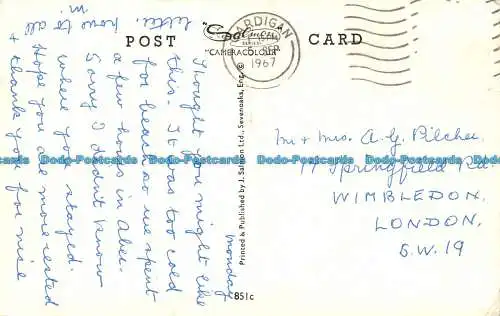 POST
CARD
"Salmon
SERIES
"CAMERACOLOUR"
CARDIGAN
1967
Monday
Thought you might like
this. It was too cold
for beach so we spent
a few hours in Aber.
Sorry I didn't know
where you stayed.
Hope you are more rested
+ thank you for nice
letter, love to all
M.
Printed & Published by J. Salmon Ltd., Sevenoaks, Eng. ©
851c
Mr + Mrs. A. G. Pilcher
77 Springfield Rd.
WIMBLEDON,
LONDON.
S.W.19
Dodo-Postcards Dodo-Postcards Dodo-Postcards Dodo-Postcards